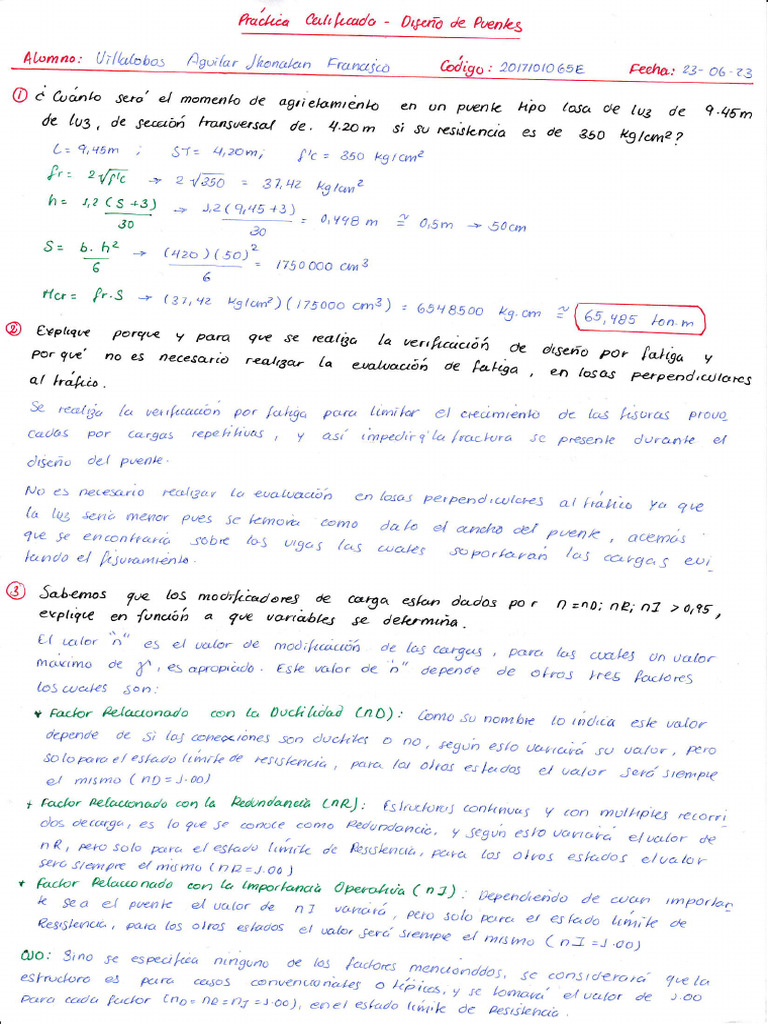 Práctica Calificada - Diseño de Puentes
Alumno: Villalobos Aguilar Jhonatan Francisco Código: 2017101065E Fecha: 23-06-23
① ¿Cuánto será el momento de agrietamiento en un puente tipo losa de luz de 9.45m
de luz, de sección transversal de. 4.20m si su resistencia es de 350 kg/cm²?
L = 9,45m ; ST = 4,20m; f'c = 350 kg/cm²
fr = 2√f'c → 2√350 = 37,42 kg/cm²
h = 1,2(S+3)/30 → 1,2(9,45+3)/30 = 0,498 m ≅ 0,5m → 50cm
S = b.h²/6 → (420)(50)²/6 = 1750000 cm³
Mcr = fr.S → (37,42 kg/cm²)(175000 cm³) = 6548500 kg.cm ≅ 65,485 ton.m
② Explique porque y para que se realiza la verificación de diseño por fatiga y
por qué no es necesario realizar la evaluación de fatiga, en losas perpendiculares
al tráfico.
Se realiza la verificación por fatiga para limitar el crecimiento de las fisuras provo
cadas por cargas repetitivas, y así impedir q' la fractura se presente durante el
diseño del puente.
No es necesario realizar la evaluación en losas perpendiculares al tráfico ya que
la luz sería menor pues se tomaría como dato el ancho del puente, además
que se encontraría sobre las vigas las cuales soportarán las cargas evi
tando el fisuramiento.
③ Sabemos que los modificadores de carga estan dados por n = nD; nR; nI > 0,95,
explique en función a que variables se determina.
El valor "n" es el valor de modificación de las cargas, para las cuales un valor
máximo de γ, es apropiado. Este valor de "n" depende de otros tres factores
los cuales son:
* Factor Relacionado con la Ductilidad (nD): Como su nombre lo indica este valor
depende de si las conexiones son ductiles o no, según esto variará su valor, pero
solo para el estado límite de resistencia, para los otros estados el valor será siempre
el mismo (nD = 1.00)
* Factor Relacionado con la Redundancia (nR): Estructuras continuas y con multiples recorri
dos de carga, es lo que se conoce como Redundancia, y según esto variará el valor de
nR, pero solo para el estado límite de Resistencia, para los otros estados el valor
será siempre el mismo (nR = 1.00)
* Factor Relacionado con la Importancia Operativa (nI): Dependiendo de cuan importan
te sea el puente el valor de nI variará, pero solo para el estado límite de
Resistencia, para los otros estados el valor será siempre el mismo (nI = 1.00)
OJO: Si no se especifica ninguno de los factores mencionados, se considerará que la
estructura es para casos convencionales o típicos, y se tomará el valor de 1.00
para cada factor (nD = nR = nI = 1.00), en el estado límite de Resistencia.